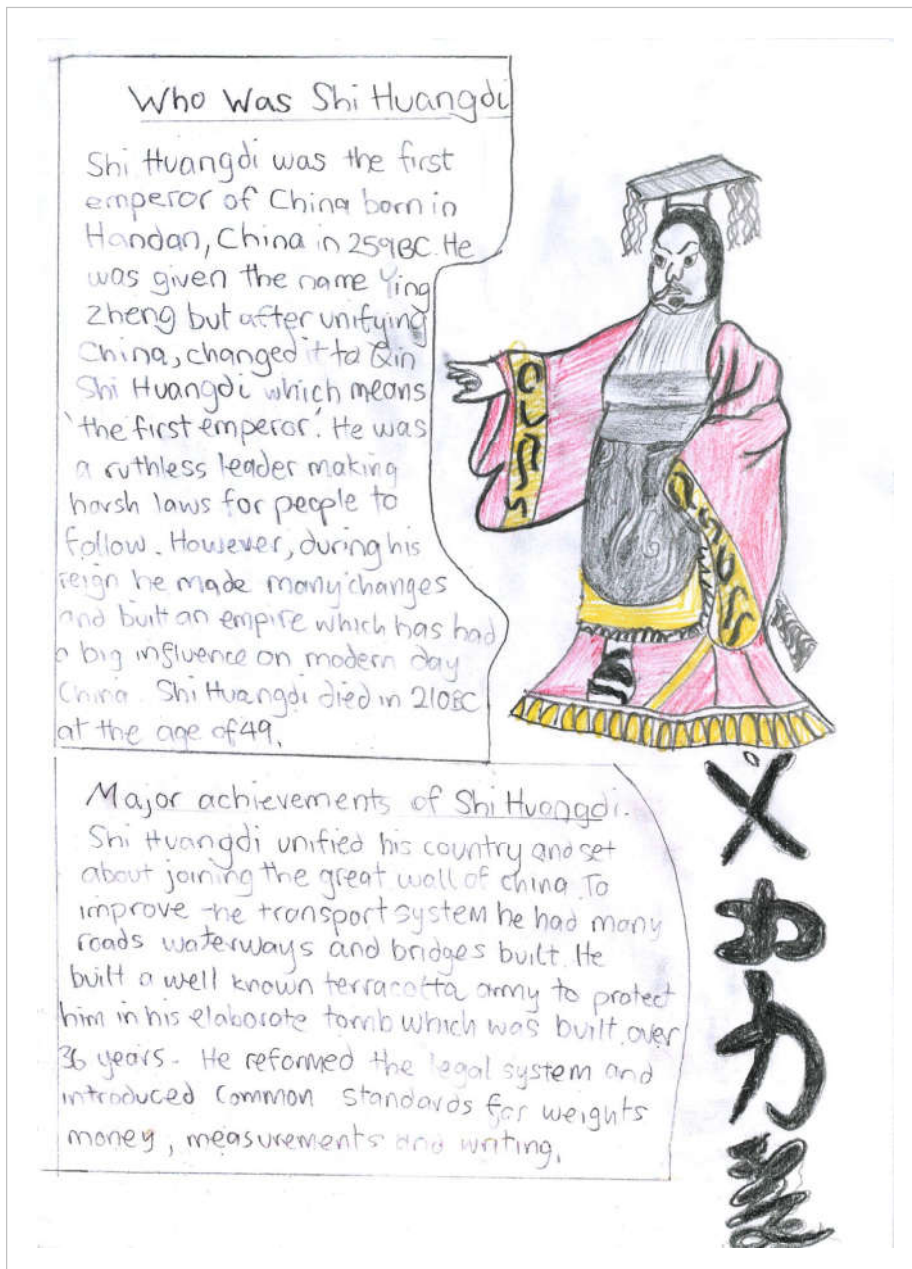 Who Was Shi Huangdi
Shi Huangdi was the first
emperor of China born in
Handan, China in 259BC. He
was given the name Ying
Zheng but after unifying
China, changed it to Qin
Shi Huangdi which means
'the first emperor'. He was
a ruthless leader making
harsh laws for people to
follow. However, during his
reign he made many changes
and built an empire which has had
a big influence on modern day
China. Shi Huangdi died in 210BC
at the age of 49.
Major achievements of Shi Huangdi.
Shi Huangdi unified his country and set
about joining the great wall of china. To
improve the transport system he had many
roads waterways and bridges built. He
built a well known terracotta army to protect
him in his elaborate tomb which was built over
36 years. He reformed the legal system and
introduced Common Standards for weights
money, measurements and writing.